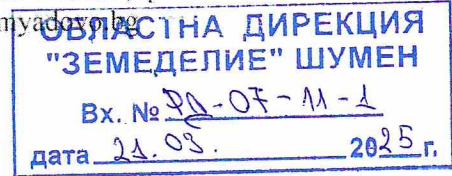 myadovo.bg
ОБЛАСТНА ДИРЕКЦИЯ
"ЗЕМЕДЕЛИЕ" ШУМЕН
Вх. № РД-07-11-1
дата 21.03. 2025 г.